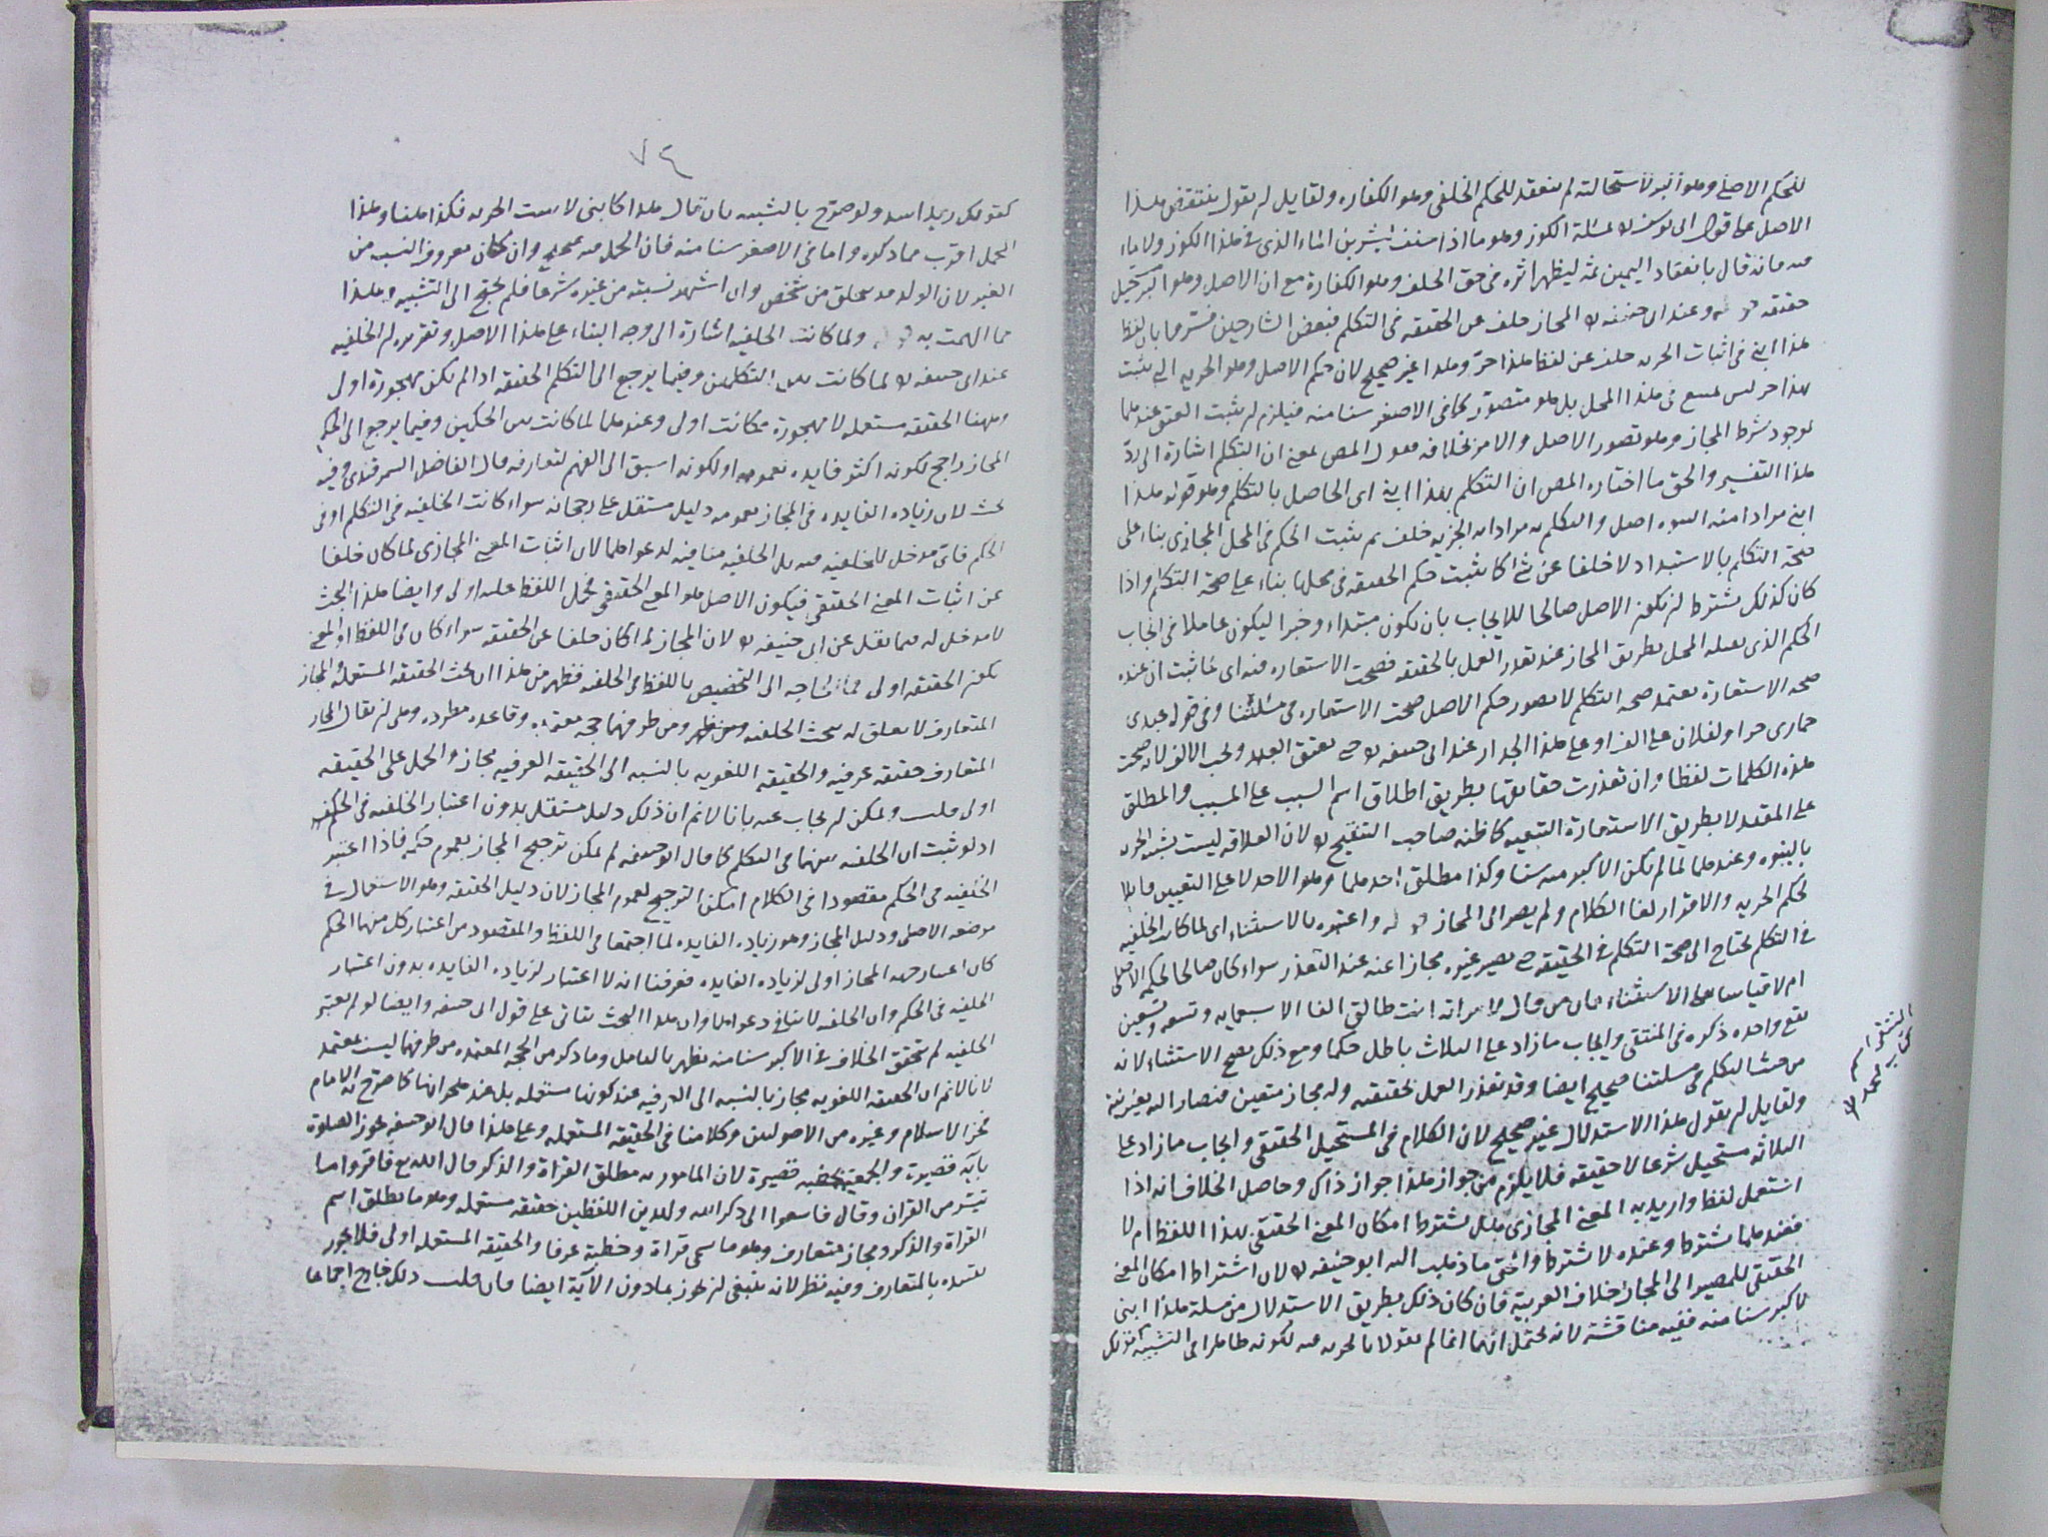 للحكم الاصلي وهو البر لاستحالته لم ينعقد للحكم الخلفي وهو الكفاره ولقايل ان يقول ينتقض هذا
الاصل على قول ابي يوسف بمسئلة الكوز وهو ما اذا حلف ليشربن الماء الذي في هذا الكوز ولا ماء
فيه فانه قال بانعقاد اليمين ثمه ليظهر اثره في حق الخلف وهو الكفارة مع ان الاصل وهو البر مستحيل
حقيقه وعند ابي حنيفه المجاز خلف عن الحقيقه في التكلم فبعض الشارحين فسرها بان لفظ
هذا ابني في اثبات الحريه خلف عن لفظ هذا حر وهذا غير صحيح لان حكم الاصل وهو الحريه التي يثبت
بهذا حر ليس بممتنع في هذا المحل بل هو متصور كما في الاصغر سنا منه فيلزم ان يثبت العتق عندهما
لوجود شرط المجاز وهو تصور الاصل والامر بخلافه فقول المص يعني ان التكلم اشارة الى رد
هذا التفسير والحق ما اختاره المص ان التكلم بهذا ابني اى الحاصل بالتكلم وهو قوله هذا
ابني مرادا منه البنوه اصل والتكلم به مرادا به الحريه خلف ثم يثبت الحكم في المحل المجازي بناء على
صحة التكلم بالاستبداد لا خلفا عن شئ كما يثبت حكم الحقيقه في محلها بناء على صحة التكلم واذا
كان كذلك يشترط ان يكون الاصل صالحا للايجاب بان يكون مبتداء وخبرا ليكون عاملا في ايجاب
الحكم الذي يقبله المحل بطريق المجاز عند تعذر العمل بالحقيقه فصحت الاستعاره فيه اى لما ثبت ان عنده
صحه الاستعارة يعتمد صحه التكلم لا تصور حكم الاصل صحت الاستعاره في مسئلتنا وفي قوله عبدى
حمارى حر او لفلان على الف او على هذا الجدار عند ابي حنيفه حتى يعتق العبد ويجب الالف لان صحت
هذه الكلمات لفظا وان تعذرت حقايقها بطريق اطلاق اسم السبب على المسبب والمطلق
على المقيد لا بطريق الاستعارة التبعيه كما ظنه صاحب التنقيح لان العلاقه ليست بشبه الحريه
بالبنوه وعندهما لما لم يكن الاكبر منه سنا وكذا مطلق احدهما وهو الاحد لا على التعيين قابلا
لحكم الحريه والاقرار لغا الكلام ولم يصر الى المجاز واعتبره بالاستثناء اى لما كانت الخلفيه
في التكلم يحتاج الى صحة التكلم في الحقيقه حتى يصير غيره مجازا عنه عند التعذر سواء كان صالحا لحكمه الاصلي
ام لا قياسا على الاستثناء فان من قال لامراته انت طالق الفا الا تسعمايه وتسعه وتسعين
يقع واحده ذكره في المنتقى وايجاب ما زاد على الثلاث باطل حكما ومع ذلك يصح الاستثناء لانه
من حيث التكلم في مسئلتنا صحيح ايضا وقد تعذر العمل بحقيقته وله مجاز متعين فصار اليه بغير نية
ولقايل ان يقول هذا الاستدلال غير صحيح لان الكلام في المستحيل الحقيقي وايجاب ما زاد على
الثلاثه مستحيل شرعا لا حقيقه فلا يلزم من جواز هذا جواز ذاك وحاصل الخلاف انه اذا
استعمل لفظ واريد به المعنى المجازي هل يشترط امكان المعنى الحقيقي بهذا اللفظ ام لا
فعندهما يشترط وعنده لا يشترط والحق ما ذهب اليه ابو حنيفه لان اشتراط امكان المعنى
الحقيقي للمصير الى المجاز خلاف العربية فان كان ذلك بطريق الاستدلال من مسئلة هذا ابني
لاكبر سنا منه ففيه مناقشة لانه يحتمل انهما انما لم يقولا بالحريه فيه لكونه ظاهرا في التشبيه كقولك
المنتقى اسم
كتاب لمحمد
٧٤
كقولك زيد اسد ولو صرح بالتشبيه بان قال هذا كابني لا يثبت الحريه فكذا هنا وهذا
المحمل اقرب مما ذكروه واما في الاصغر سنا منه فان الحمل فيه صحيح وان كان معروف النسب من
الغير لان الولد قد يخلق من شخص وان اشتهر نسبته من غيره شرعا فلم يحتج الى التشبيه وهذا
مما الهمت به ولما كانت الخلفيه اشارة الى وجه البناء على هذا الاصل وتقريره ان الخلفيه
عند ابي حنيفه لما كانت بين التكلمين وفيما يرجع الى التكلم الحقيقه اذا لم تكن مهجورة اولى
وههنا الحقيقه مستعمله لا مهجورة فكانت اولى وعندهما لما كانت بين الحكمين وفيما يرجع الى الحكم
المجاز راجح لكونه اكثر فايده بعمومه او لكونه اسبق الى الفهم لتعارفه قال الفاضل السمرقندى وفيه
بحث لان زياده الفايده في المجاز بعمومه دليل مستقل على رجحانه سواء كانت الخلفيه في التكلم او في
الحكم فاى مدخل للخلفيه فيه بل الخلفيه منافيه لدعواهما لان اثبات المعنى المجازى لما كان خلفا
عن اثبات المعنى الحقيقي فيكون الاصل هو المعنى الحقيقي فحمل اللفظ عليه اولى وايضا هذا البحث
لا مدخل له فيما نقل عن ابي حنيفه لان المجاز لما كان خلفا عن الحقيقه سواء كان في اللفظ او المعنى
يكون الحقيقه اولى فما الحاجه الى التخصيص باللفظ في الخلفيه فظهر من هذا ان بحث الحقيقه المستعمله والمجاز
المتعارف لا تعلق له ببحث الخلفيه ومن طرفهما حجه معتمده وقاعده مطرده وهي ان يقال المجاز
المتعارف حقيقه عرفيه والحقيقه اللغويه بالنسبه الى الحقيقه العرفيه مجاز والحمل على الحقيقه
اولى قلت ويمكن ان يجاب عنه بانا لا نم ان ذلك دليل مستقل بدون اعتبار الخلفيه في الحكم
اذ لو ثبت ان الخلفيه بينهما في التكلم كما قال ابو حنيفه لم يمكن ترجيح المجاز بعموم حكمه فاذا اعتبر
الخلفيه في الحكم مقصودا في الكلام امكن الترجيح لعموم المجاز لان دليل الحقيقه وهو الاستعمال في
موضعه الاصلي ودليل المجاز وهو زياده الفايده لما اجتمعا في اللفظ والمقصود من اعتبار كل منهما الحكم
كان اعتبار جهه المجاز اولى لزياده الفايده فعرفنا ان لا اعتبار لزياده الفايده بدون اعتبار
الخلفيه في الحكم وان الخلفيه لا تنافي دعواهما وان هذا البحث يتاتى على قول ابي حنيفه وايضا لو لم يعتبر
الخلفيه لم يتحقق الخلاف في الاكبر سنا منه يظهر بالتامل وما ذكر من الحجه المعتمده من طرفهما ليست بمعتمد
لانا لا نم ان الحقيقه اللغويه مجاز بالنسبه الى العرفيه عند كونها مستعمله بل عند هجرانها كما صرح به الامام
فخر الاسلام وغيره من الاصوليين وكلامنا في الحقيقه المستعمله وعلى هذا قال ابو حنيفه يجوز الصلوة
بآية قصيرة والجمعة بخطبه قصيرة لان المامور به مطلق القراة والذكر قال الله تع فاقروا ما
تيسر من القران وقال فاسعوا الى ذكر الله ولهذين اللفظين حقيقه مستعمله وهو ما يطلق اسم
القراة والذكر ومجاز متعارف وهو ما سمى قراة وخطبة عرفا والحقيقه المستعمله اولى فلا يجوز
تقييده بالمتعارف وفيه نظر لانه ينبغى ان يجوز بما دون الآية ايضا فان قلت ذلك خارج اجماعا